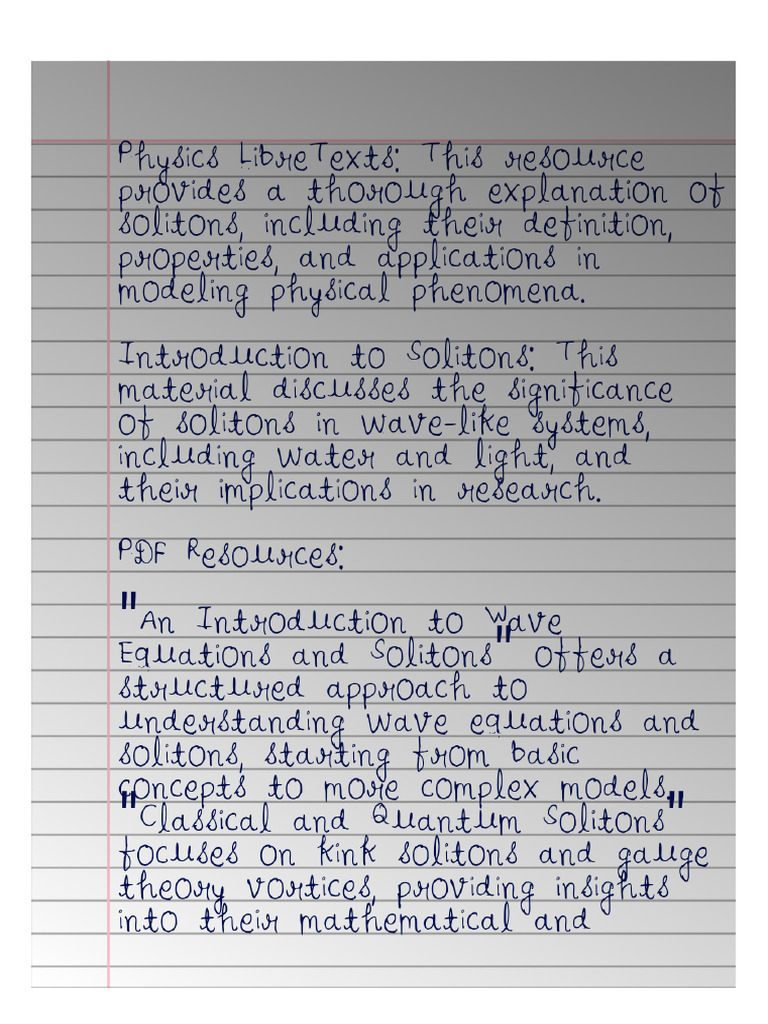 Physics LibreTexts: This resource
provides a thorough explanation of
solitons, including their definition,
properties, and applications in
modeling physical phenomena.
Introduction to Solitons: This
material discusses the significance
of solitons in wave-like systems,
including water and light, and
their implications in research.
PDF Resources:
"An Introduction to Wave
Equations and Solitons" offers a
structured approach to
understanding wave equations and
solitons, starting from basic
concepts to more complex models.
"Classical and Quantum Solitons"
focuses on kink solitons and gauge
theory vortices, providing insights
into their mathematical and